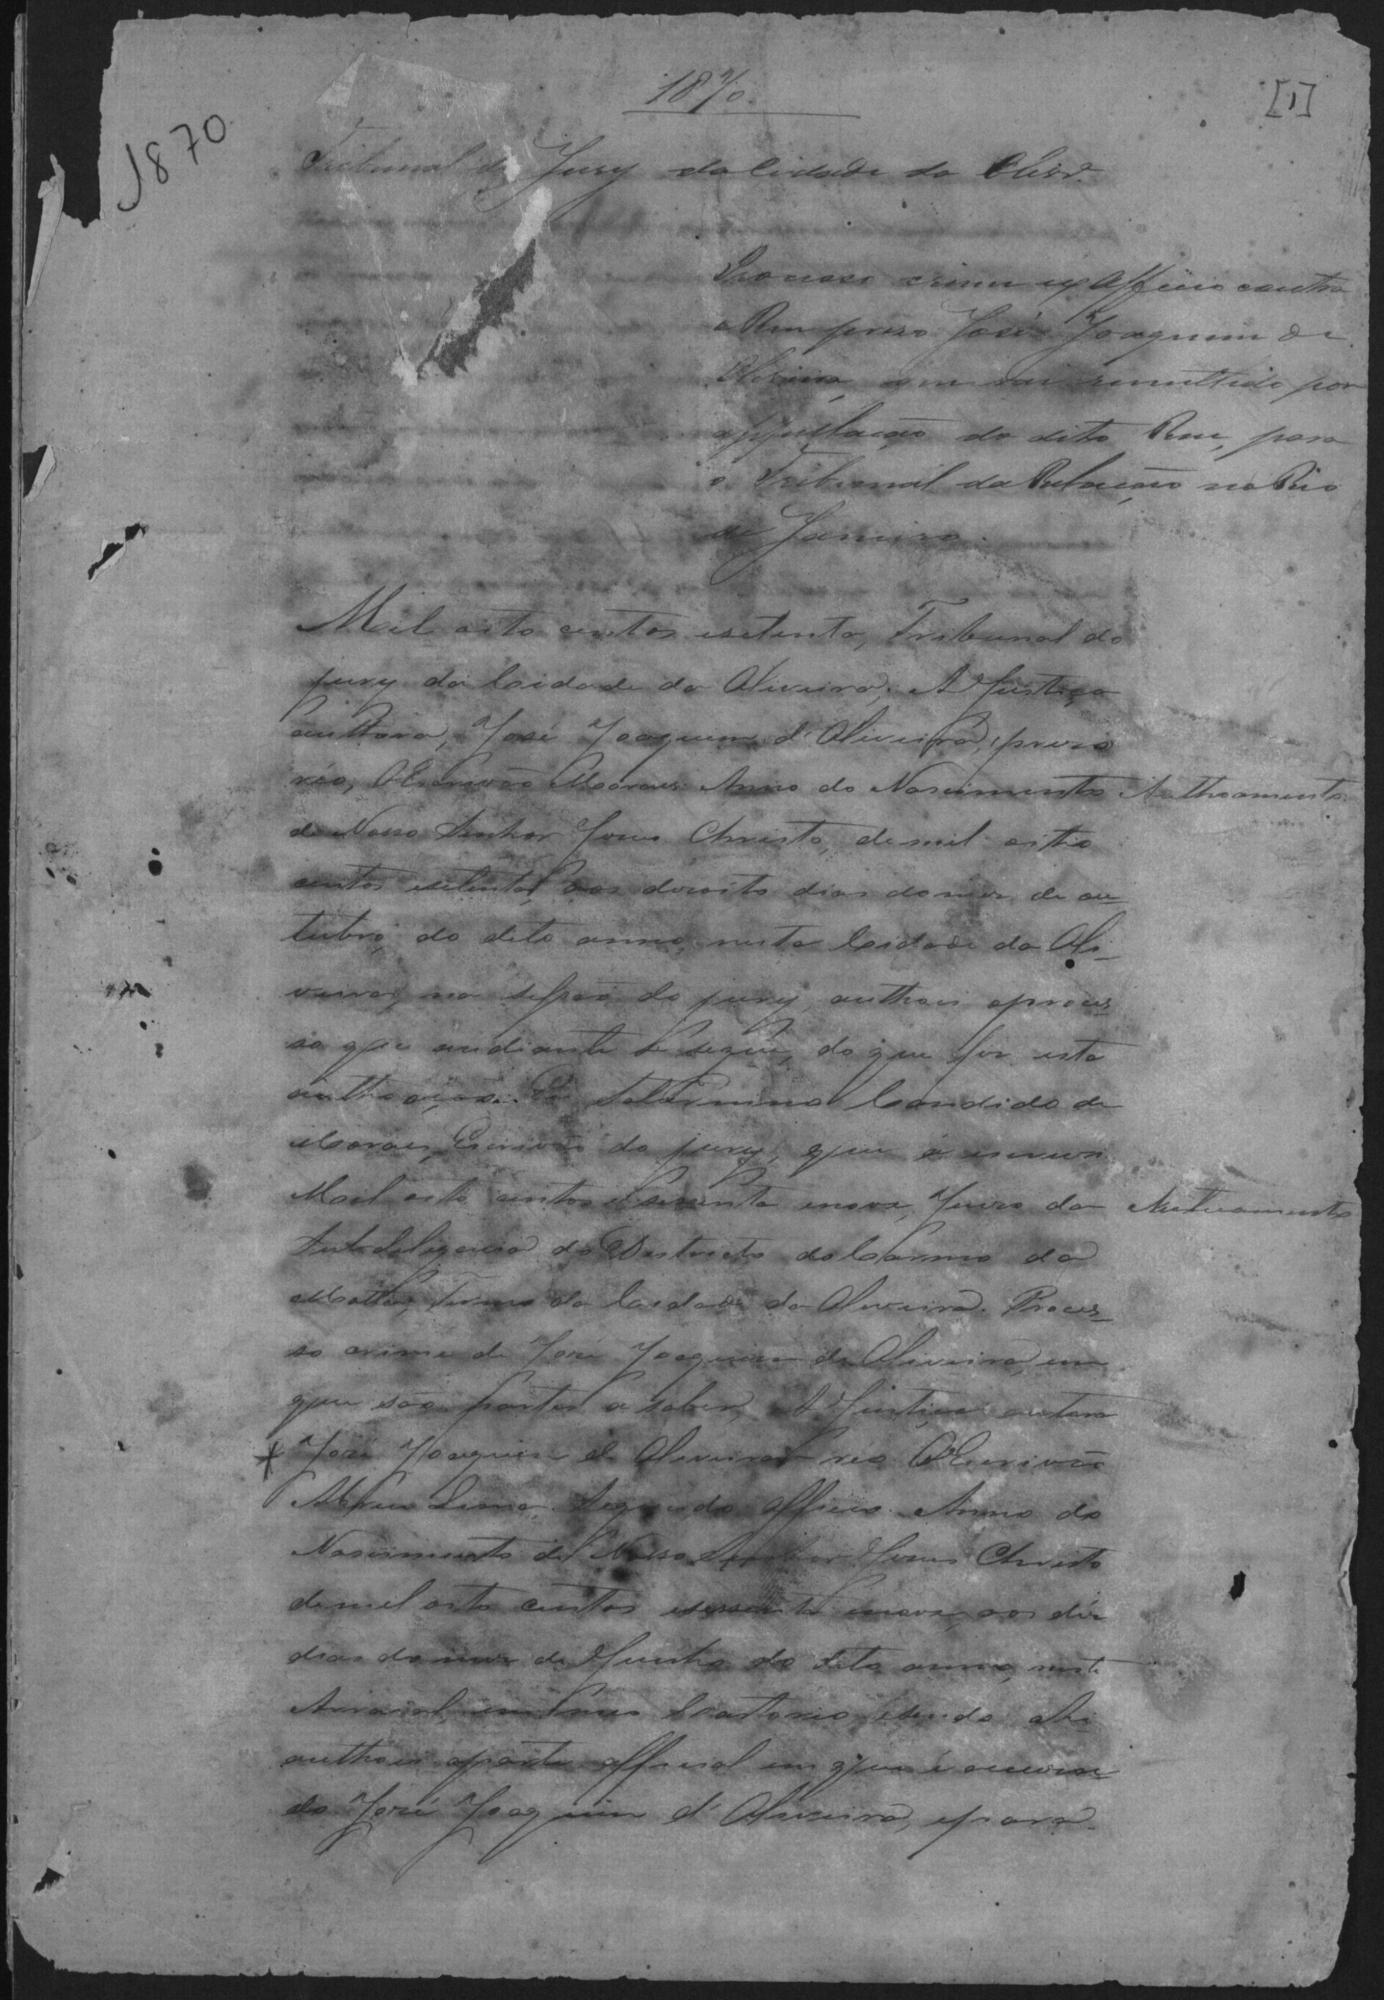 1870.
[1]
1870
Tribunal do Jury da Cidade da Olivrª
Processo crime ex Officio contra
o Reu preso José Joaquim de
Oliveira, que vai remettido por
appellação do dito Reu, para
o Tribunal da Relação no Rio
de Janeiro.
Mil oito centos e setenta, Tribunal do
jury da Cidade da Oliveira, A Justiça
authora, José Joaquim d'Oliveira, preso
réo, O Escrivão Moraes. Anno do Nascimento
Authoamento
de Nosso Senhor Jesus Christo, de mil oito
centos e setenta, aos dezoito dias do mez de ou-
tubro, do dito anno, nesta Cidade da Oli-
veira, na sessão do jury, authoei o proces-
so que ao diante se segue, do que fiz esta
authoação. Eu Saturnino Candido de
Moraes, Escrivão do jury, que o escrevi.
Mil oito centos e sessenta e nove, Juizo da
Authoamento
Subdelegacia do Districto do Carmo da
Matta, Termo da Cidade da Oliveira. Proces-
so crime de José Joaquim de Oliveira, em
que são partes a saber, A Justiça autora
* José Joaquim de Oliveira reo O Escrivão
Abreu Lima. Segundo officio. Anno do
Nascimento de Nosso Senhor Jesus Christo
de mil oito centos e sessenta e nove, aos dez
dias do mez de Junho do dito anno, neste
Arraial, em meu Cartorio, sendo ahi
authoei a parte official em que é accusa-
do José Joaquim d'Oliveira, e para